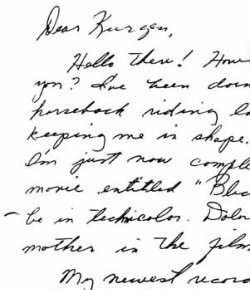 Dear Kurgen,
Hello there! How
you? I've been doin
horseback riding la
keeping me in shape.
I'm just now comple
movie entitled "Blu
be in technicolor. Dolor
mother in the film
My newest recor